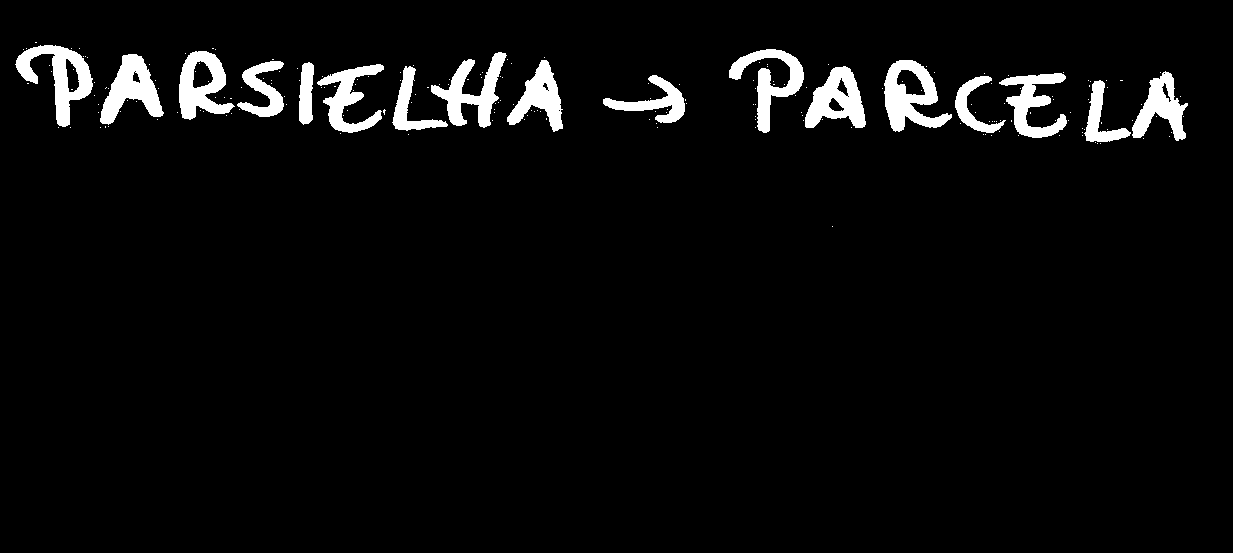 PARSIELHA → PARCELA